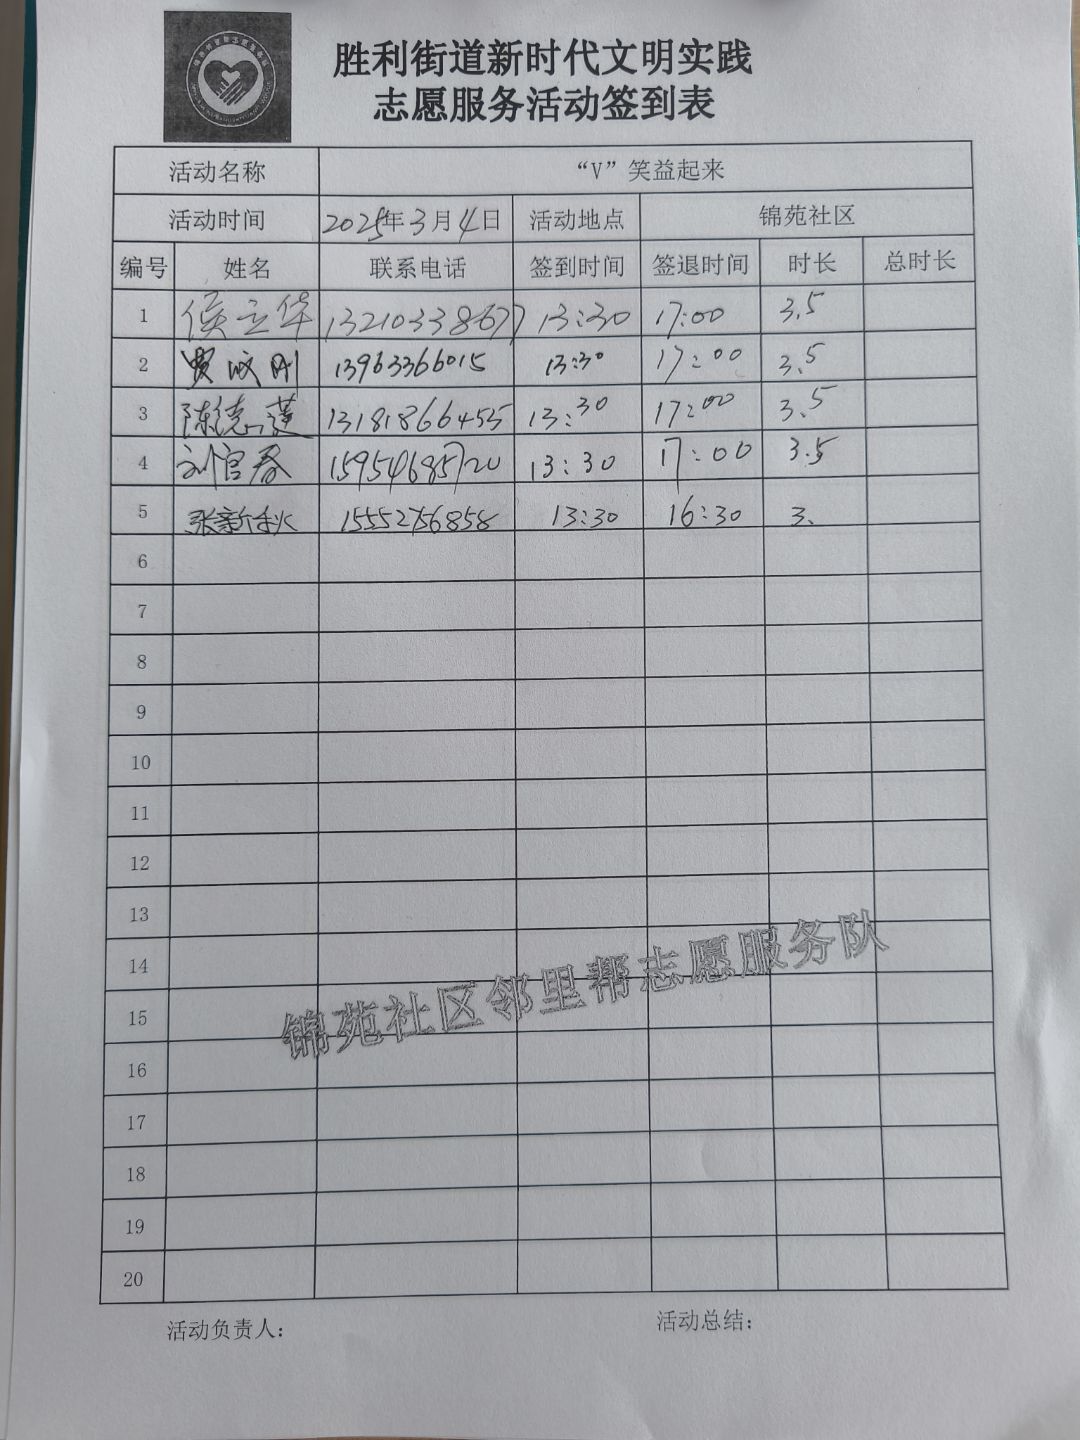 胜利街道新时代文明实践
志愿服务活动签到表
活动名称 “V”笑益起来
活动时间 2025年3月4日 活动地点 锦苑社区
编号 姓名 联系电话 签到时间 签退时间 时长 总时长
1 侯立华 13210338677 13:30 17:00 3.5
2 贾 刚 13963366015 13:30 17:00 3.5
3 陈德莲 13181866455 13:30 17:00 3.5
4 刘官春 15954685720 13:30 17:00 3.5
5 张新秋 15552756858 13:30 16:30 3.
6
7
8
9
10
11
12
13
14
锦苑社区邻里帮志愿服务队
15
16
17
18
19
20
活动负责人: 活动总结: